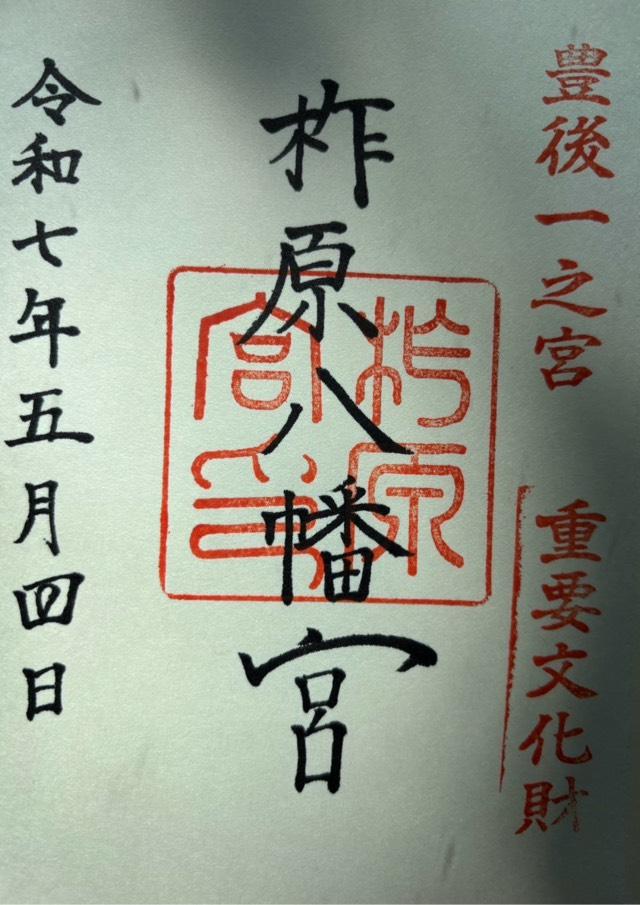 豊後一之宮
重要文化財
柞原八幡宮
令和七年五月四日